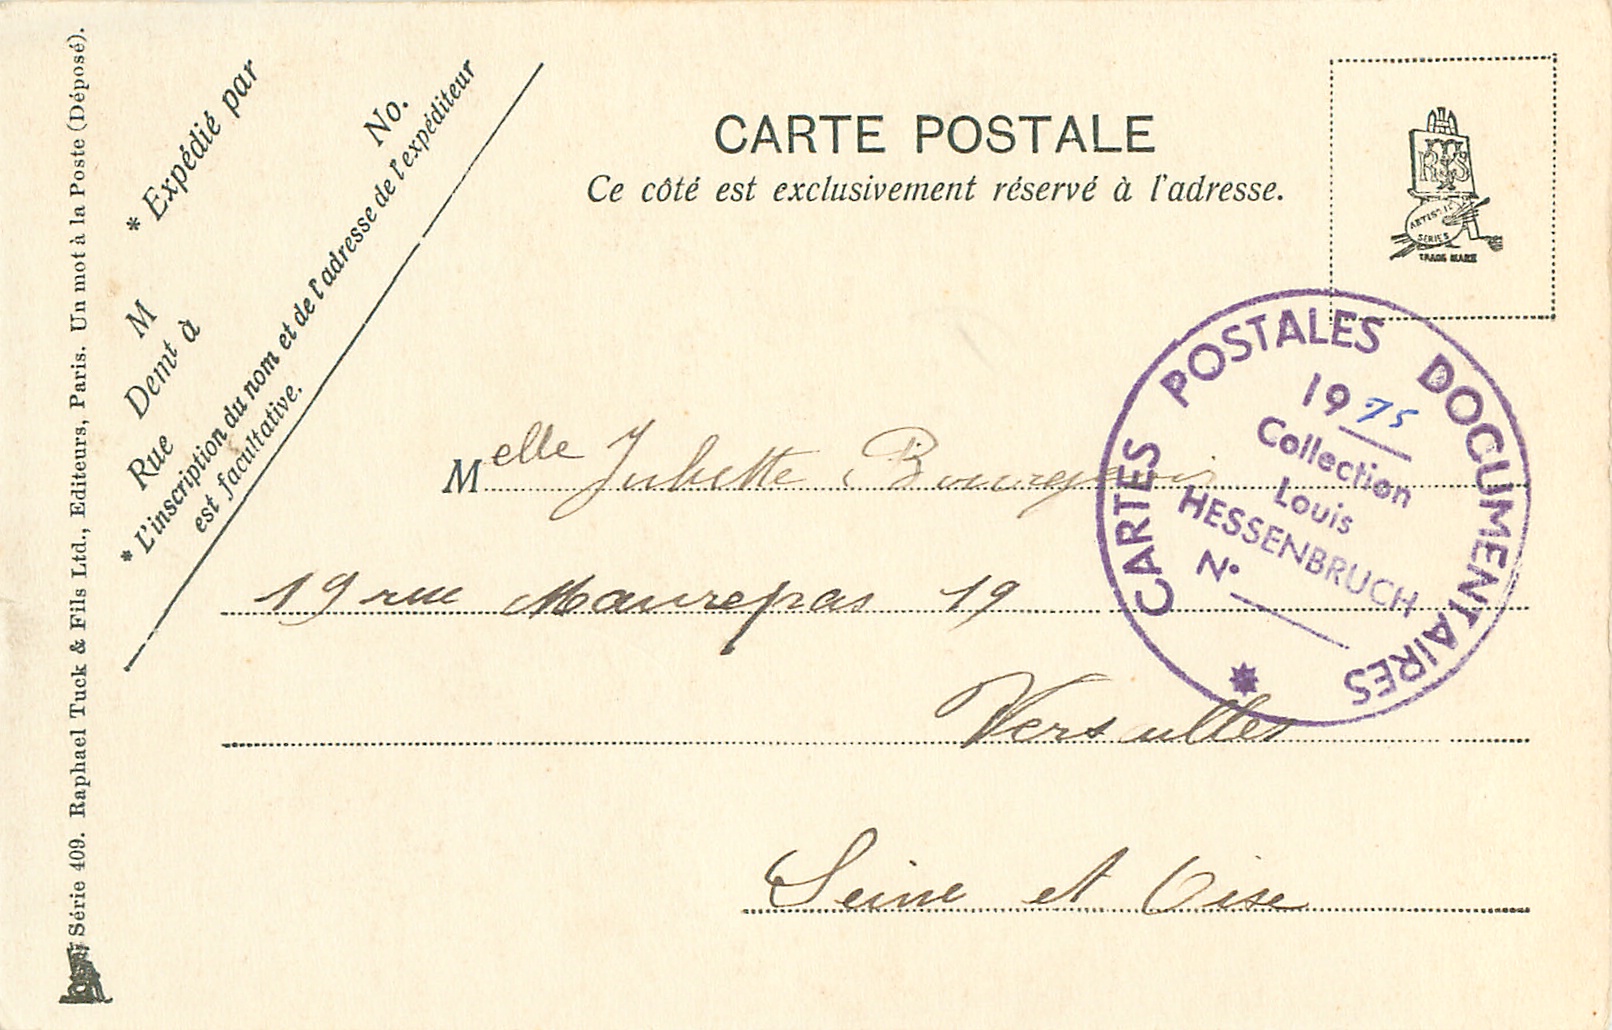 CARTE POSTALE
Ce côté est exclusivement réservé à l'adresse.
R T S
ARTISTIC
SERIES
TRADE MARK
* Expédié par
No.
M
Demt à
Rue
* L'inscription du nom et de l'adresse de l'expéditeur
est facultative.
Série 409. Raphael Tuck & Fils Ltd., Editeurs, Paris. Un mot à la Poste (Déposé).
CARTES POSTALES DOCUMENTAIRES
1975
Collection
Louis
HESSENBRUCH
N°
Melle Juliette Bourgeois
19 rue Maurepas 19
Versailles
Seine et Oise